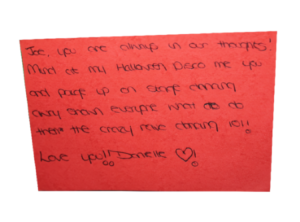 Joe, you are always in our thoughts!
Mind at my Halloween Disco me you
and Paige up on stage dancing
away showin everyone what to do
the crazy rave dancing
Love you!! Danielle ♡!